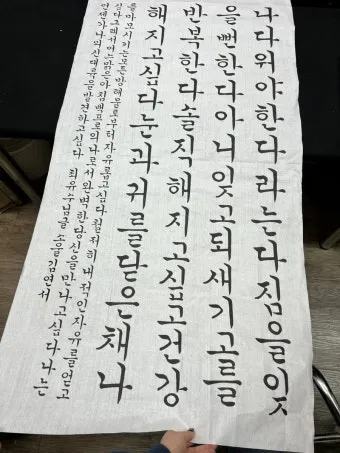 나다워야한다라는다짐을잊
을뻔한다아니잊고되새기고를
반복한다솔직해지고싶고건강
해지고싶다눈과귀를닫은채나
를마모시키는모든방해물로부터자유롭고싶다철저히내적인자유를얻고
싶다그래서어느밝은아침백프로의나로서완벽한당신을만나고싶다나는
언젠가나의신대륙을발견하고싶다 최유수님글 소울김연서